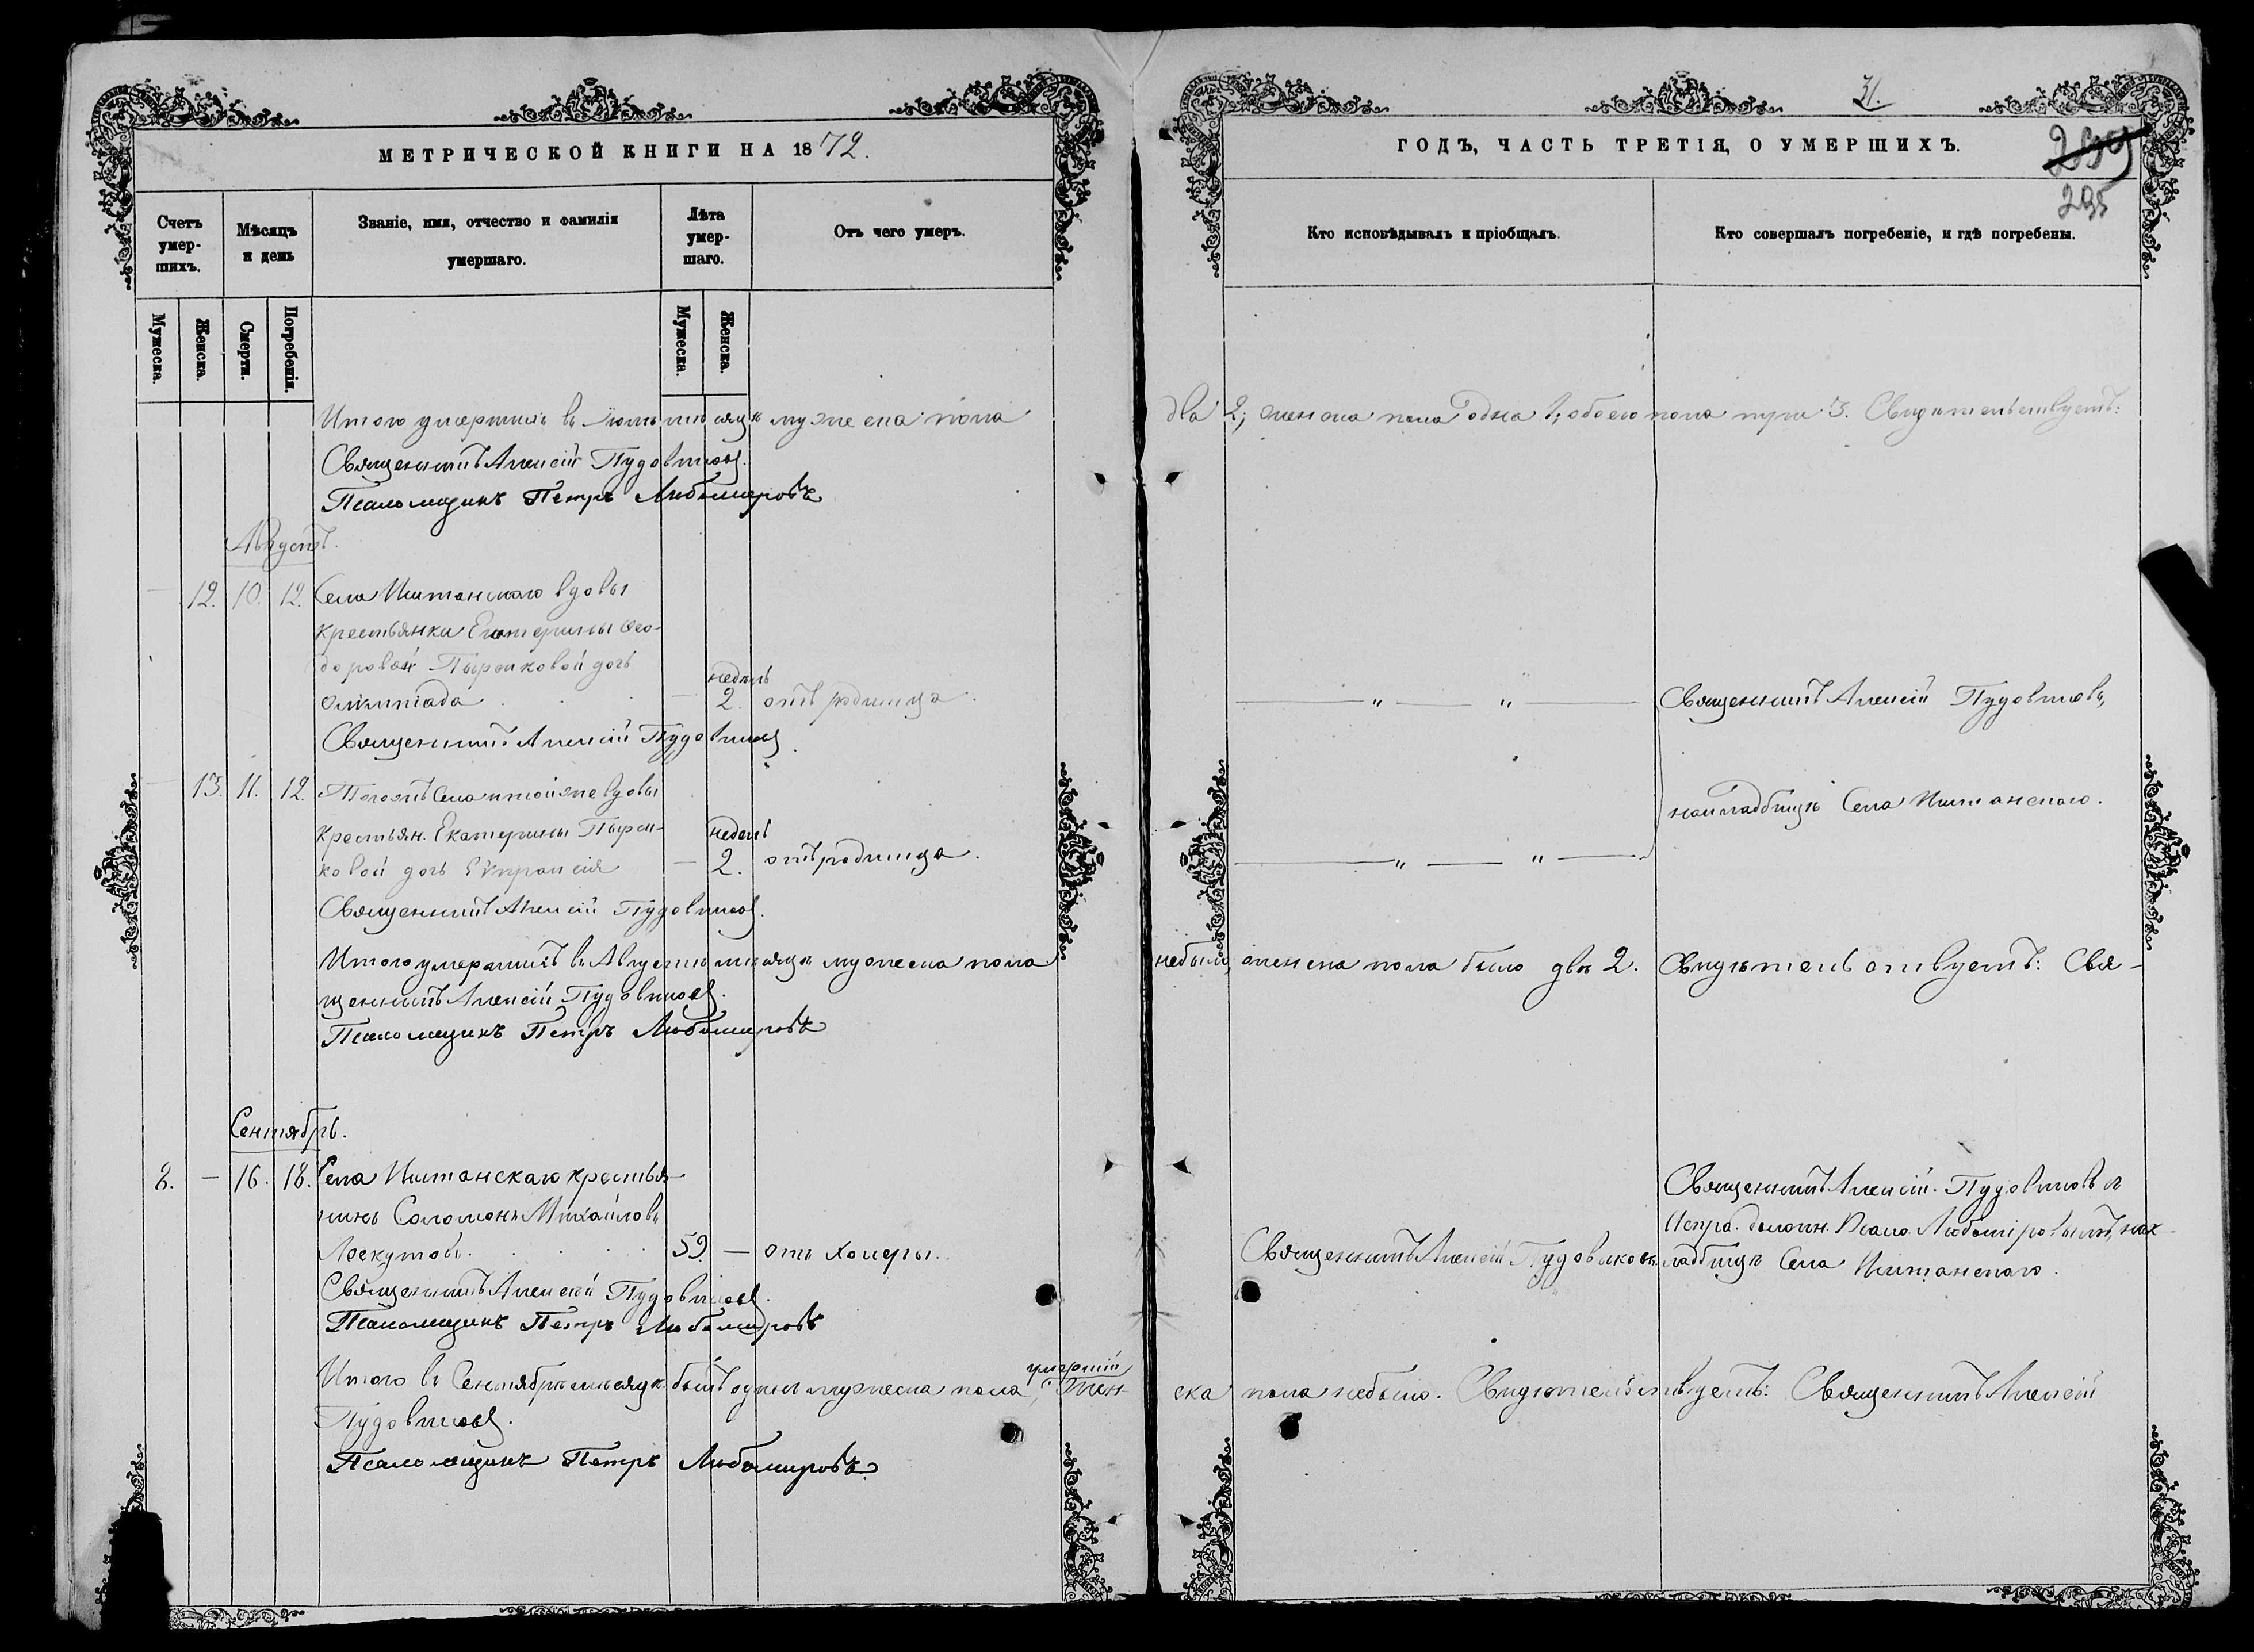 МЕТРИЧЕСКОЙ КНИГИ НА 1872.
Счетъ умер-шихъ.
Мѣсяцъ и день
Званіе, имя, отчество и фамилія умершаго.
Лѣта умер-шаго.
Отъ чего умеръ.
Мужеска.
Женска.
Смерти.
Погребенія.
Мужеска.
Женска.
Итого умершихъ въ Іюлѣ мѣсяцѣ мужеска пола
Священникъ Алексій Пудовиковъ.
Псаломщикъ Петръ Любомировъ
Августъ.
12. 10. 12. Села Ишtанскаго вдовы
крестьянки Екатерины Ѳео-
доровой Пырсиковой дочь
недѣль
Олимпіада — 2. отъ родимца.
Священникъ Алексій Пудовиковъ.
13. 11. 12. Тогожъ Села и тойже вдовы
крестьян. Екатерины Пырси-
недѣль
ковой дочь Евпраксія — 2. отъ родимца.
Священникъ Алексій Пудовиковъ.
Итого умершихъ въ Августѣ мѣсяцѣ мужеска пола
щенникъ Алексій Пудовиковъ.
Псаломщикъ Петръ Любомировъ
Сентябрь.
2. — 16. 18. Села Иштанскаго крестья-
нинъ Соломонъ Михайловъ
Лоскутовъ. 59. — отъ холеры.
Священникъ Алексій Пудовиковъ.
Псаломщикъ Петръ Любомировъ
умершій
Итого въ Сентябрѣ мѣсяцѣ былъ одинъ мужеска пола, жен-
Пудовиковъ.
Псаломщикъ Петръ Любомировъ.
31.
ГОДЪ, ЧАСТЬ ТРЕТІЯ, О УМЕРШИХЪ.
295
Кто исповѣдывалъ и пріобщалъ.
Кто совершалъ погребеніе, и гдѣ погребены.
два 2; женска пола одна 1; обоего пола три 3. Свидѣтельствуетъ:
— " — " — Священникъ Алексій Пудовиковъ,
на кладбищѣ Села Иштанскаго.
— " — " —
небыло женска пола было двѣ 2. Свидѣтельствуетъ: Свя-
Священникъ Алексій Пудовиковъ и
Испра. должн. Псало. Любомировымъ, на к-
Священникъ Алексій Пудовиковъ. ладбищѣ Села Иштанскаго.
ска пола небыло. Свидѣтельствуетъ: Священникъ Алексій